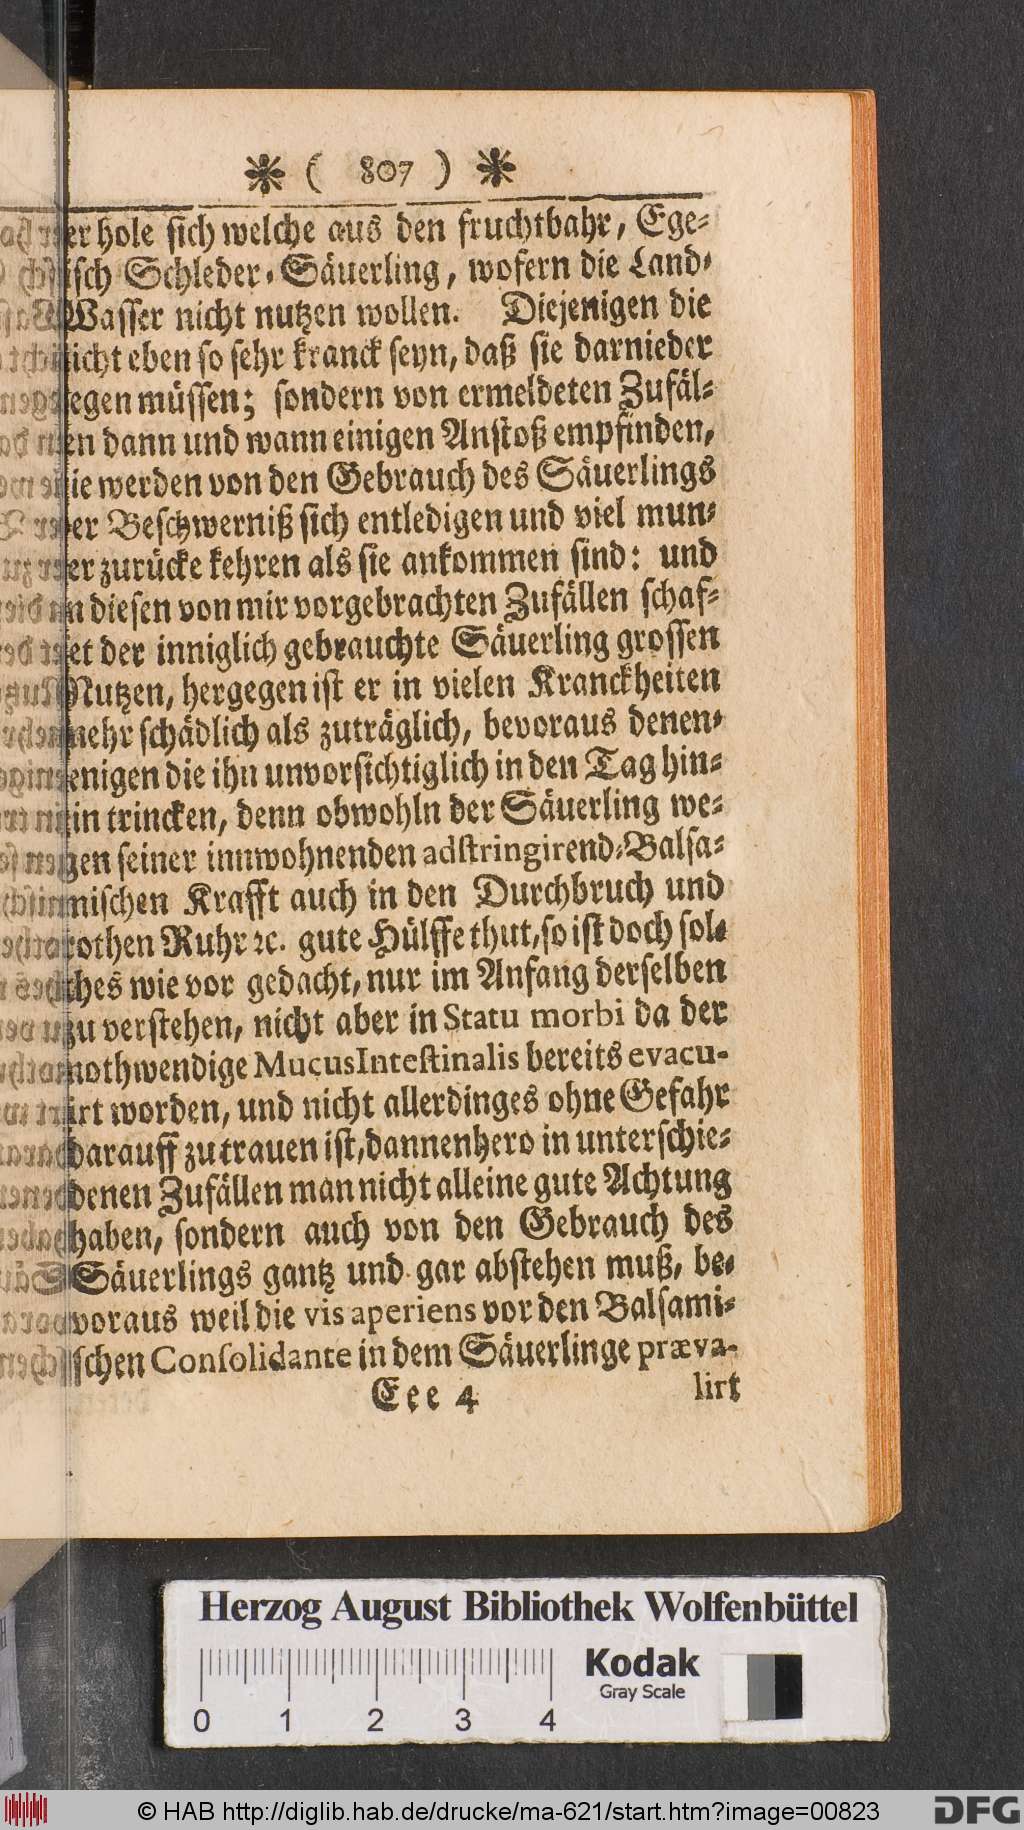 ❋ ( 807 ) ❋
er hole sich welche aus den fruchtbahr, Ege-
isch Schleder-Säuerling, wofern die Land-
Wasser nicht nutzen wollen. Diejenigen die
nicht eben so sehr kranck seyn, daß sie darnieder
legen müssen; sondern von ermeldeten Zufäl-
len dann und wann einigen Anstoß empfinden,
sie werden von den Gebrauch des Säuerlings
der Beschwerniß sich entledigen und viel mun-
ter zurücke kehren als sie ankommen sind: und
in diesen von mir vorgebrachten Zufällen schaf-
fet der inniglich gebrauchte Säuerling grossen
Nutzen, hergegen ist er in vielen Kranckheiten
mehr schädlich als zuträglich, bevoraus denen-
jenigen die ihn unvorsichtiglich in den Tag hin-
ein trincken, denn obwohln der Säuerling we-
gen seiner innwohnenden adstringirend-Balsa-
mischen Krafft auch in den Durchbruch und
rothen Ruhr ꝛc. gute Hülffe thut, so ist doch sol-
ches wie vor gedacht, nur im Anfang derselben
zu verstehen, nicht aber in Statu morbi da der
nothwendige Mucus Intestinalis bereits evacu-
irt worden, und nicht allerdinges ohne Gefahr
darauff zu trauen ist, dannenhero in unterschie-
denen Zufällen man nicht alleine gute Achtung
haben, sondern auch von den Gebrauch des
Säuerlings gantz und gar abstehen muß, be-
voraus weil die vis aperiens vor den Balsami-
schen Consolidante in dem Säuerlinge præva-
Eee 4 lirt
Herzog August Bibliothek Wolfenbüttel
Kodak
Gray Scale
0 1 2 3 4
© HAB http://diglib.hab.de/drucke/ma-621/start.htm?image=00823
DFG